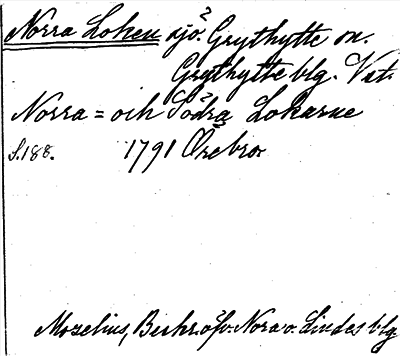 Norra Loken sjö. 2 Grythytte sn.
Grythytte blg. Vstm.
Norra= och Södra Lokarne
S.188. 1791 Örebro.
Mozelius, Beskr. öfv. Nora o. Lindes blg.